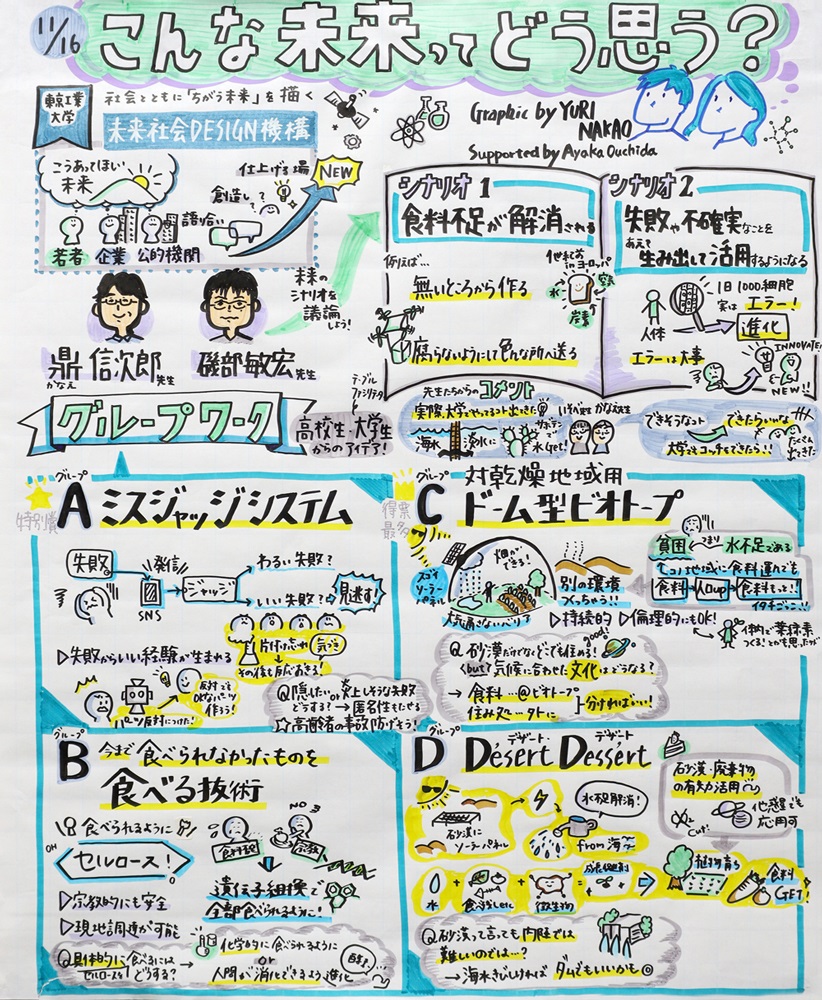 11/16
こんな未来ってどう思う?
東京工業
大学
社会とともに「ちがう未来」を描く
未来社会DESIGN機構
Graphic by YURI
NAKAO
Supported by Ayaka Ouchida
こうあってほしい
未来
仕上げる場
NEW
創造して
語り合い
若者 企業 公的機関
未来の
シナリオを
議論
しよう!
鼎 信次郎先生
かなえ
磯部敏宏先生
シナリオ1
食料不足が解消される
例えば…
無いところから作る
水
窒素
炭素
腐らないようにして色んな所へ送る
シナリオ2
失敗や不確実なことを
あえて
生み出して活用するようになる
1日1000細胞
実はエラー!
人体
進化
エラーは大事
INNOVATE!
NEW!!
先生たちからのコメント
海水
淡水に
サボテン
水Get!
いそべ先生 かなえ先生
グループワーク
テーブル
ファシリテータ
高校生・大学生
からのアイデア!
特別賞
グループ
A ミスジャッジシステム
失敗
発信
SNS
ジャッジ
わるい失敗?
いい失敗?
見逃す!
▷失敗からいい経験が生まれる
片付け忘れ
気づき
反対でも
作ろう!
Q隠したい or 炎上しそうな失敗
どうする? → 匿名性もたせる
☆高齢者の事故防げそう!
得票
最多
グループ
C 対乾燥地域用
ドーム型ビオトープ
スゴイ
ソーラーパネル
大気通さないバリア
別の環境
つくっちゃう!!
▷持続的 ▷倫理的にもOK!
貧困
つまり
水不足である
食料
人口up
食料もっと!!
イタチごっこ!!
Q砂漠だけでなくどこでも住める! good!
but? 気候に合わせた文化はどうなる?
→ 食料…@ビオトープ
分ければいい!
グループ
B 今まで食べられなかったものを
食べる技術
食べられるように
OH
セルロース!
▷宗教的にも安全
▷現地調達が可能
NO
宗教
遺伝子組換で
全部食べられるように!
Q具体的に食べるには
セルロースを どうする?
→ 化学的に食べられるように
or
人間が消化できるよう進化
グループ
D Désert Dessért
デザート・デザート
砂漠に
ソーラーパネル
水不足解消!
from 海
砂漠・廃棄物
の有効活用
他惑星でも
応用可
水 + 食べ残し + 微生物 = 成長促進剤
植物育ち
食料
GET!
Q砂漠って言っても内陸では
難しいのでは…?
→ 海水きびしければ ダムでもいいかも